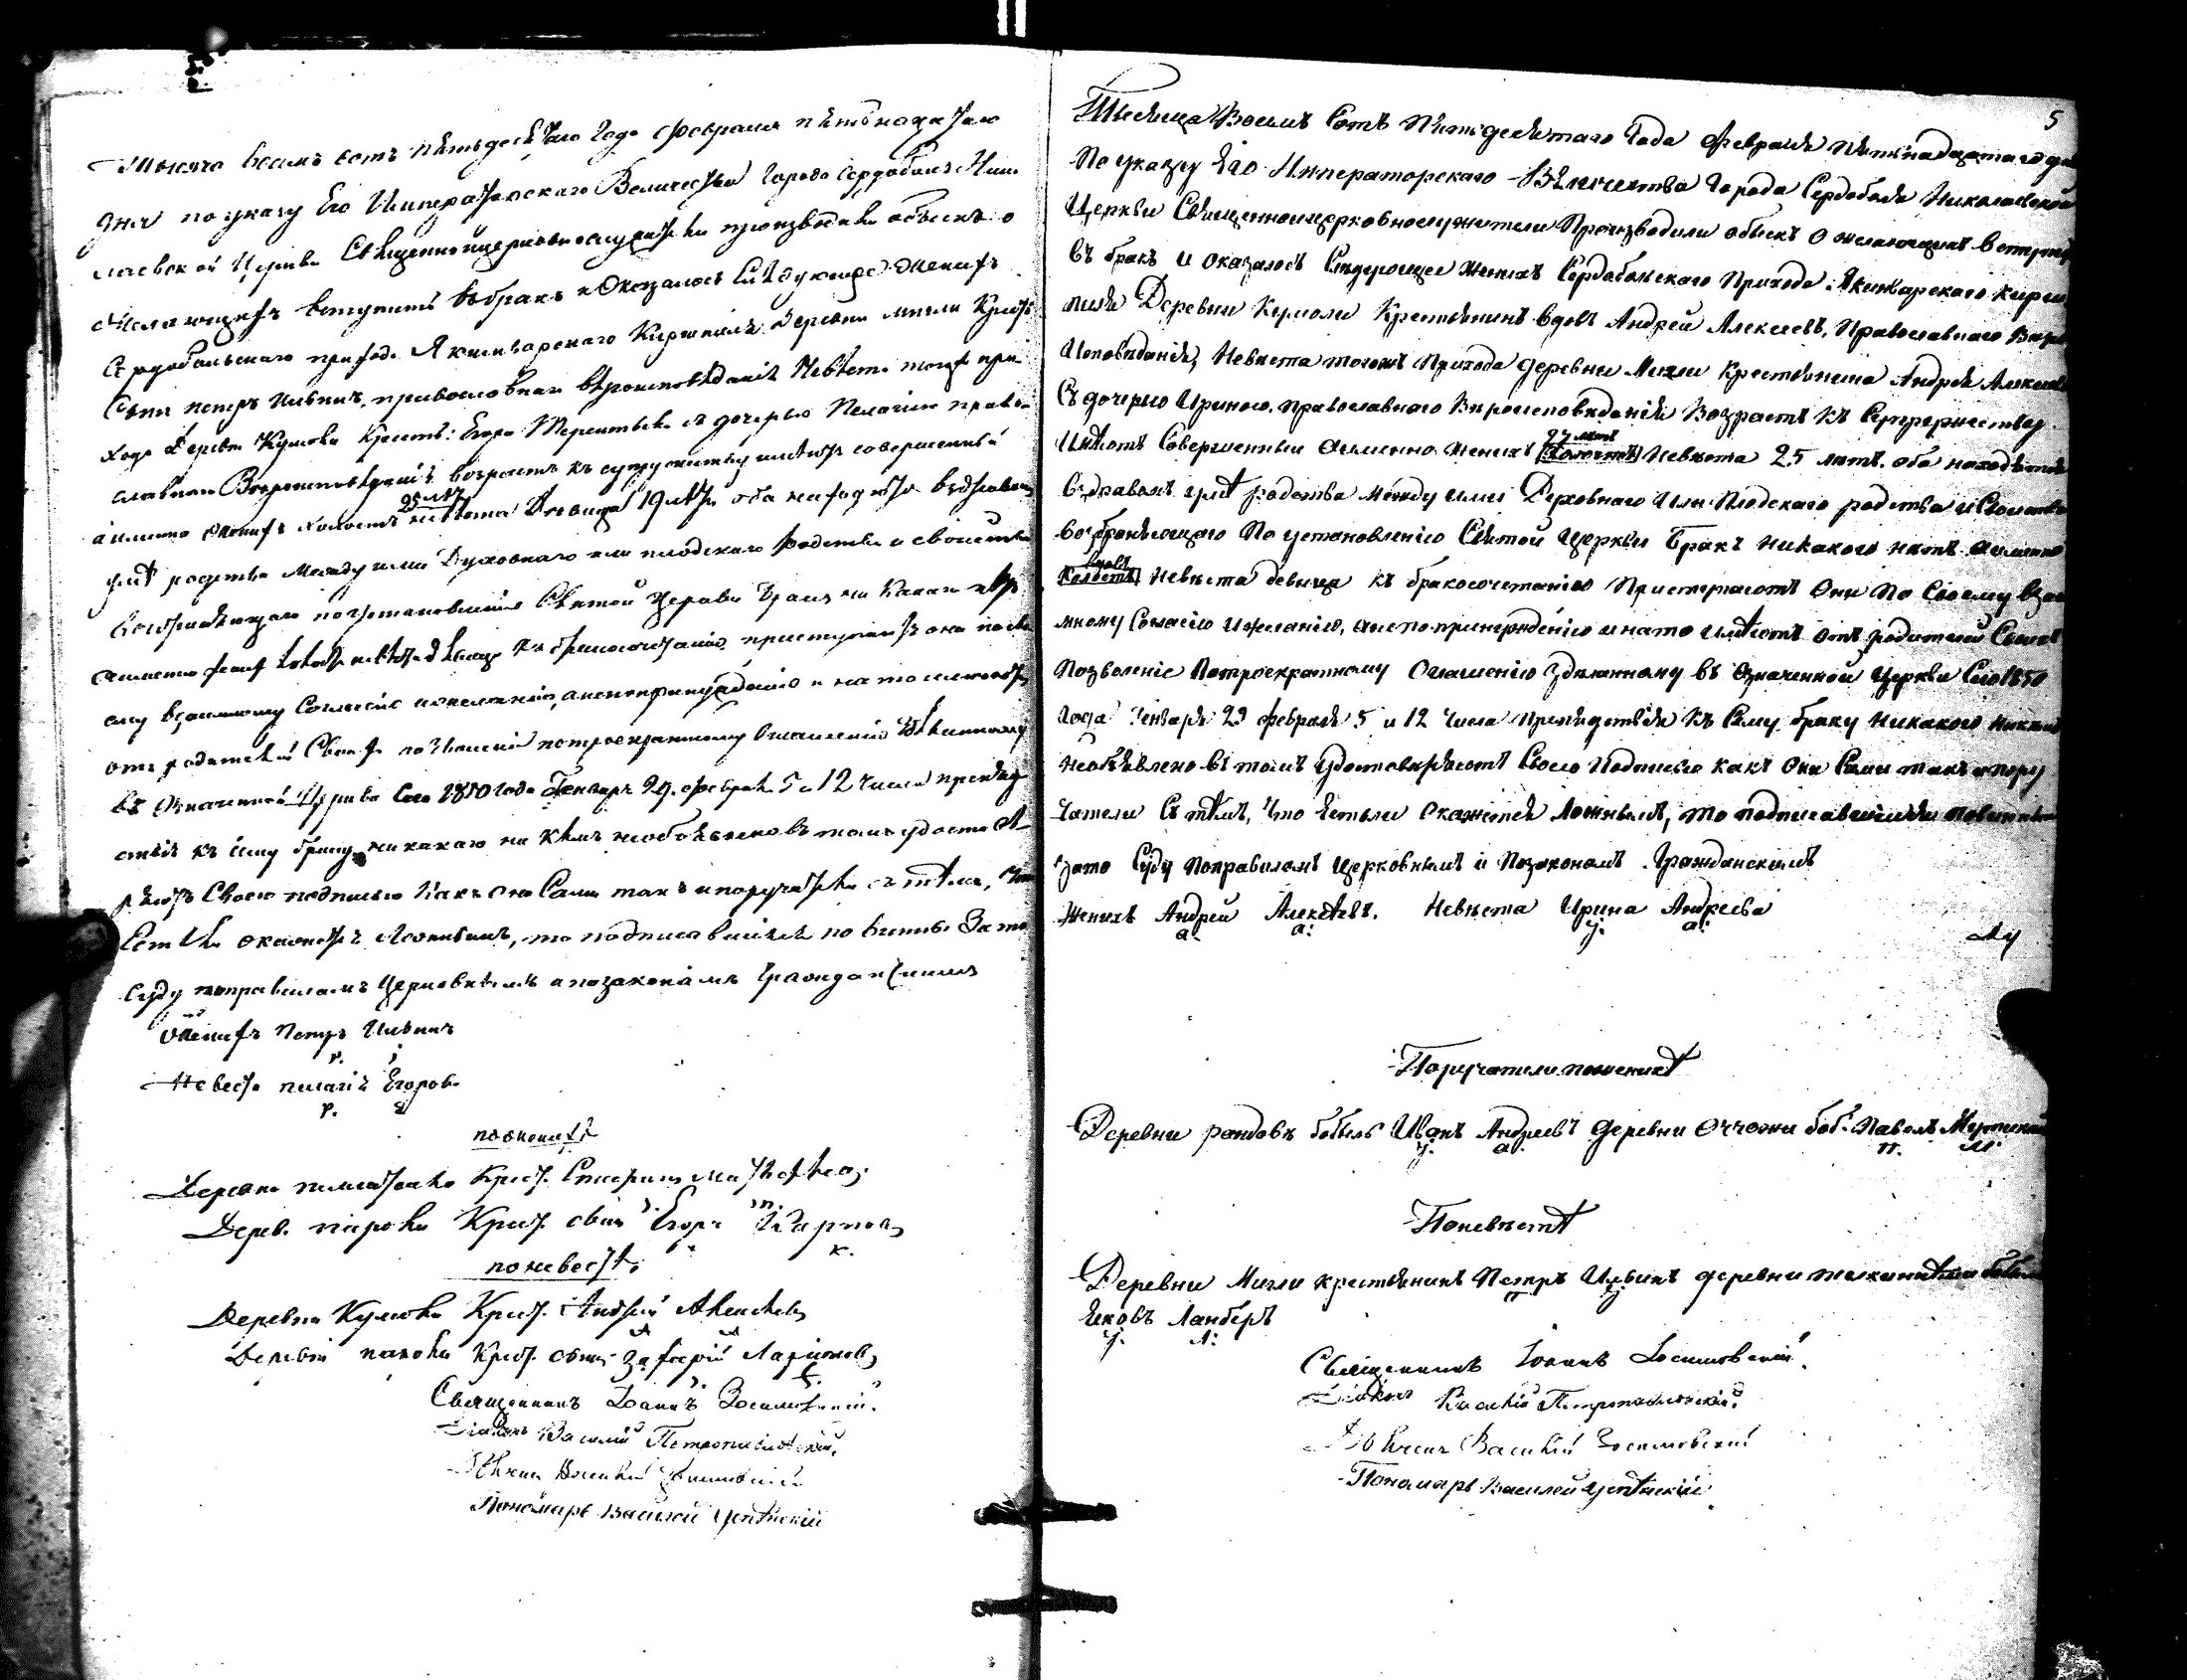 Тысяча восемъ сотъ пятьдесятаго года февраля пятьнацатаго
дня по указу Его Императорскаго Величества города Сердоболя Нико
лаевской Церкви Священноицерковнослужители производили обыскъ о
желающихъ вступить въ бракъ и оказалось следующее Женихъ
Сердобольскаго прихода Якимварскаго Кирхшпиля Деревни мигли Крест:
Сынъ петръ Ильинъ, православнаго вѣроисповѣданія Невѣста тогоже при
хода Деревни Кумола Крестъ: Егора Терентьева съ дочерью Пелагіею право
славнаго Вѣроисповѣданія возрастъ къ супружеству имѣютъ совершенный
а именно Женихъ холостъ 25 лѣтъ невѣста дѣвица 19 лѣтъ оба находятся въ здравомъ
умѣ родства между ими Духовнаго или плодскаго родства и свойства
возбраняющаго по установленію Святой Церкви бракъ никакаго нѣтъ
а именно женихъ холостъ невѣста дѣвица къ бракосочетанію приступаютъ они по сво
ему взаимному согласію и желанію, а не по принужденію и на то имеютъ
отъ родителей Своихъ позволеніе по троекратному оглашенію зделанному
въ Означенной Церкви Сего 1850 года Генваря 29. февраля 5 и 12 числа препят
ствія къ сему браку никакаго ни кѣмъ необъявлено въ томъ удостовѣ
ряютъ Своею подписью Какъ они Сами такъ и поручатели съ тѣмъ, что
Естьли окажется ложнымъ, то подписавшіися повинны За то
Суду по правиламъ Церковнымъ и по законамъ Гражданскимъ
Женихъ Петръ Ильинъ
Невеста пилагія Егорова
по женихѣ
Деревни Крест.
Дерев. Крест. сынъ Егоръ Карповъ
по невестѣ
Деревни Кумола Крест. Андрей Алексѣевъ
Деревни Крест. сынъ Захарій Ларіоновъ
Священникъ Іоаннъ Зосимовскій.
Діаконъ Василій Петропавловскій.
Дьячекъ Василій Зосимовскій
Пономарь Василей Успѣнскій
5
Тысяща Восемъ Сотъ Пятьдесятаго Года Февраля Пятьнадцатаго дня
По указу Его Императорскаго Величества Города Сердоболя Николаевской
Церкви Священноицерковнослужители Производили обыскъ о желающихъ вступить
въ бракъ и оказалось Следующее Женихъ Сердобольскаго Прихода Якимварскаго Кирхш
пиля Деревни Кумоли Крестьянинъ вдовъ Андрей Алексеевъ, Православнаго Вѣро
Исповѣданія, Невѣста тогожъ Прихода деревни Мигли Крестьянина Андрея Алексеева
Съ дочерью Ириною. Православнаго Вѣроисповѣданія Возрастъ къ Супружеству
Имѣютъ Совершенный а именно женихъ 27 лѣтъ Холостъ Невѣста 25 лѣтъ. оба находятся
въ здравомъ умѣ родства между ими Духовнаго Или Плодскаго родства и Свойства
возбраняющаго По установленію Святой Церкви Бракъ никакого нѣтъ а именно
вдовъ Холостъ Невѣста девица къ бракосочетанію Приступаютъ Они По Своему взаи
мному Согласію и желанію, а не по принужденію и на то имѣютъ отъ родителей Своихъ
Позволеніе По троекратному оглашенію зделанному въ Означенной Церкви Сего 1850
Года Генваря 29 февраля 5 и 12 числа Препядствія къ Сему браку никакого никемъ
необъявлено въ томъ удостовѣряютъ Своею Подписью какъ они Сами такъ и пору
чатели Съ тѣмъ, что Естьли Окажется Ложнымъ, то подписавшіися повинны
зато Суду По правиламъ Церковнымъ и По законамъ Гражданскимъ
Женихъ Андрей Алексѣевъ. Невѣста Ирина Андреева
Поручатели по женихѣ
Деревни рандовъ бобыль Иванъ Андреевъ деревни боб. Павелъ
По невѣстѣ
Деревни Мигли крестьянинъ Петръ Ильинъ деревни
Яковъ Ланберъ
Священникъ Іоаннъ Зосимовскій.
Діаконъ Василій Петропавловскій.
Дьячекъ Василій Зосимовскій
Пономарь Василей Успѣнскій